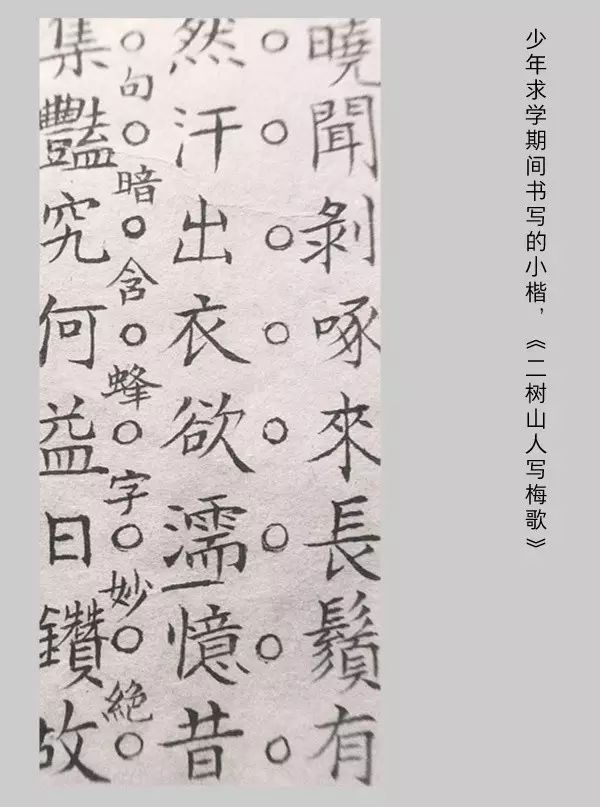 少年求学期间书写的小楷，《二树山人写梅歌》
曉聞剝啄來長鬚有
然汗出衣欲濡憶昔
句暗含蜂字妙絶
集豔究何益日鑽故